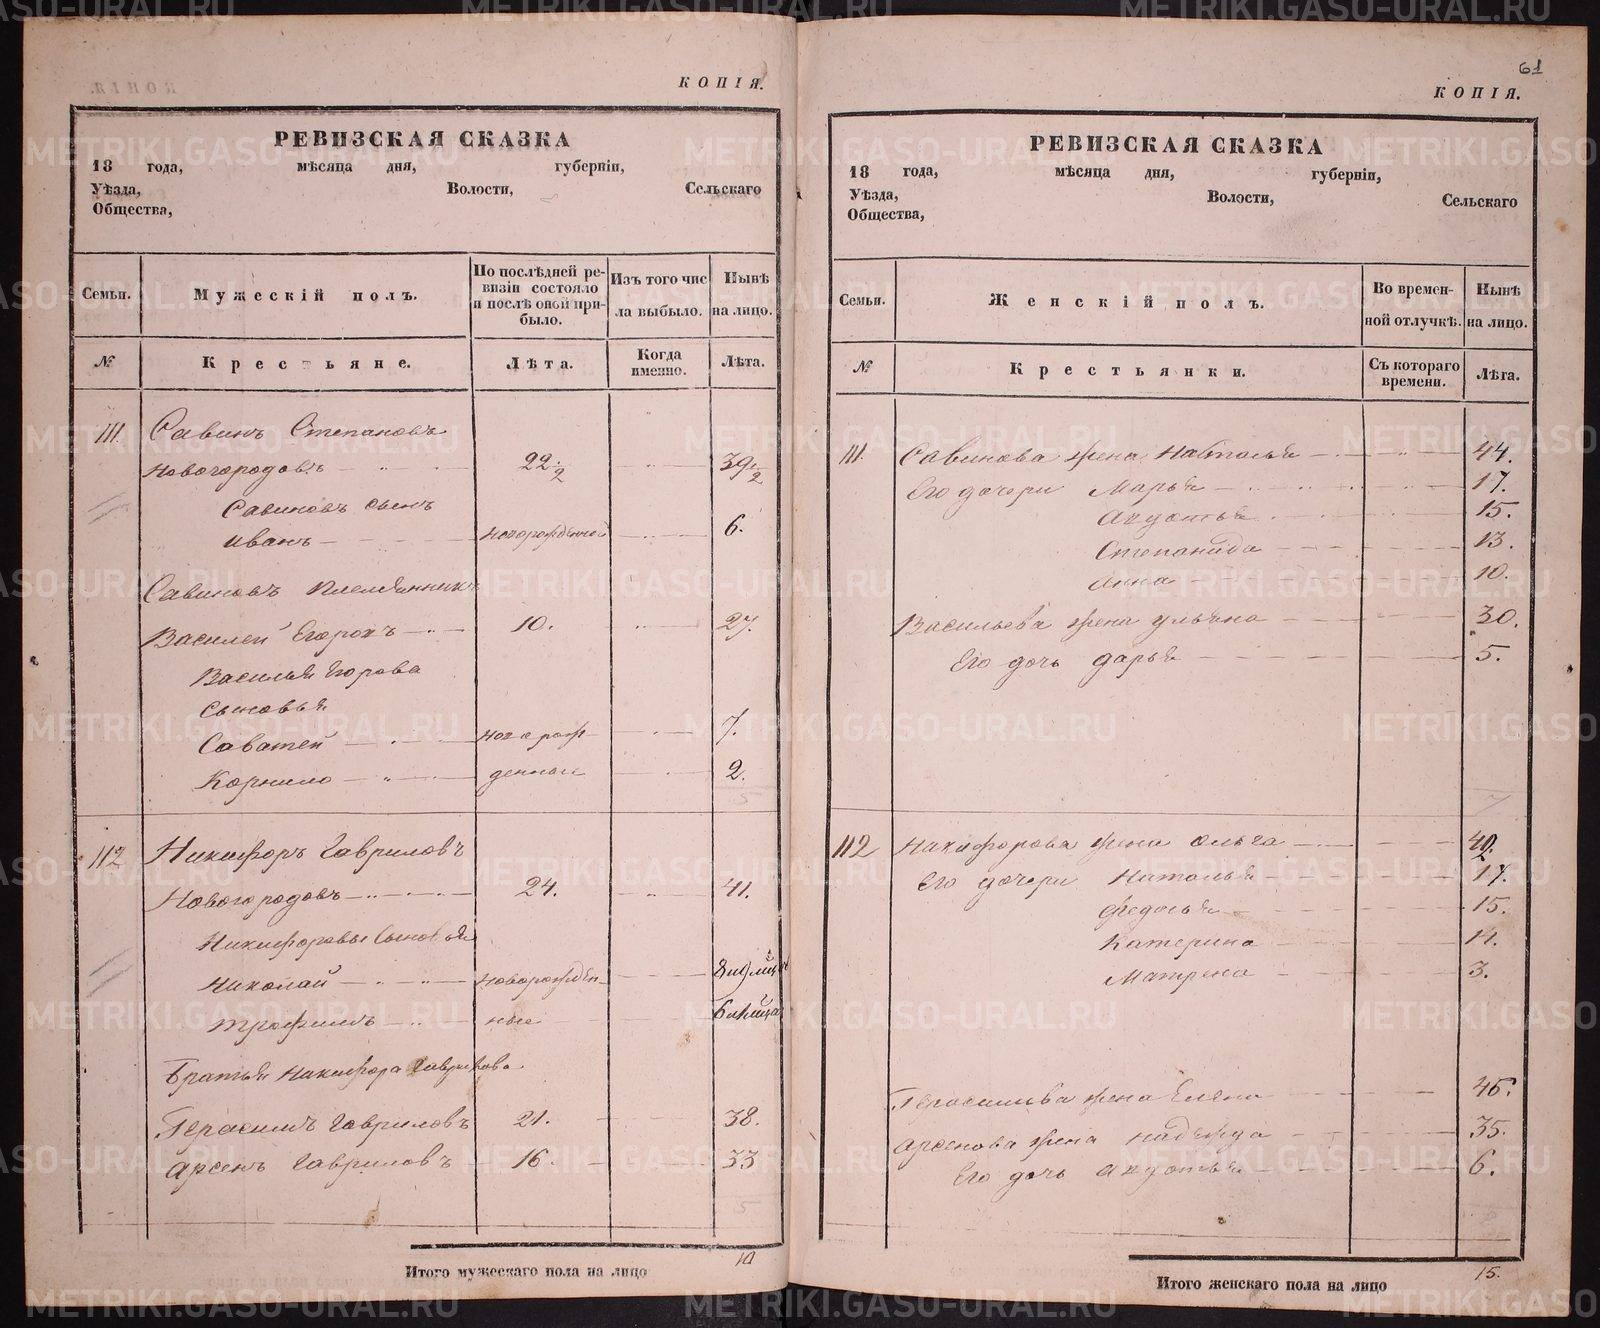 КОПІЯ.
РЕВИЗСКАЯ СКАЗКА
18 года, мѣсяца дня, губерніи,
Уѣзда, Волости, Сельскаго
Общества,
Семьи. Мужескій полъ. По послѣдней ревизіи состояло и послѣ оной прибыло. Изъ того числа выбыло. Нынѣ на лицо.
№ Крестьяне. Лѣта. Когда именно. Лѣта.
111. Савинъ Степановъ
Новогородовъ 22 1/2 39 1/2
Савиновъ сынъ
Иванъ новорожденной 6.
Савиновъ племянникъ
Василей Егоровъ 10. 27.
Василья Егорова
сыновья
Саватей новорож- 7.
Корнило денные 2.
5
112 Никифоръ Гавриловъ
Новогородовъ 24. 41.
Никифоровы сыновья
Николай новорожден-
Трофимъ ные
Братья Никифора Гаврилова
Герасимъ Гавриловъ 21. 38.
Арсенъ Гавриловъ 16. 33
5
Итого мужескаго пола на лицо 10
61
КОПІЯ.
РЕВИЗСКАЯ СКАЗКА
18 года, мѣсяца дня, губерніи,
Уѣзда, Волости, Сельскаго
Общества,
Семьи. Женскій полъ. Во временной отлучкѣ. Нынѣ на лицо.
№ Крестьянки. Съ котораго времени. Лѣта.
111. Савинова жена Наталья 44.
Его дочери Марья 17.
Авдотья 15.
Степанида 13.
Анна 10.
Васильева жена Ульяна 30.
Его дочь Дарья 5.
7
112 Никифорова жена Ольга 40.
Его дочери Наталья 17.
Федосья 15.
Катерина
Матрена 3.
Герасимова жена Елена
Арсенова жена Надежда 35.
Его дочь Авдотья 6.
Итого женскаго пола на лицо 15.
METRIKI.GASO-URAL.RU